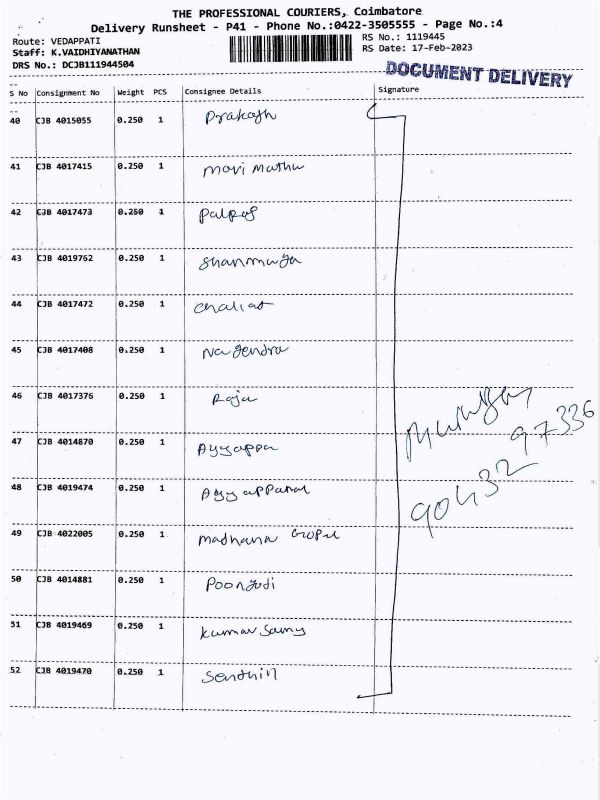 THE PROFESSIONAL COURIERS, Coimbatore
Delivery Runsheet - P41 - Phone No.:0422-3505555 - Page No.:4
Route: VEDAPPATI RS No.: 1119445
Staff: K.VAIDHIYANATHAN RS Date: 17-Feb-2023
DRS No.: DCJB111944504 DOCUMENT DELIVERY
S No Consignment No Weight PCS Consignee Details Signature
40 CJB 4015055 0.250 1 Prakash
41 CJB 4017415 0.250 1 mari muthu
42 CJB 4017473 0.250 1
43 CJB 4019762 0.250 1 Shanmuga
44 CJB 4017472 0.250 1
45 CJB 4017408 0.250 1 Nagendra
46 CJB 4017376 0.250 1 Raja
47 CJB 4014870 0.250 1 Ayyappa
48 CJB 4019474 0.250 1 Ayyappan
49 CJB 4022005 0.250 1 madhana Gopal
50 CJB 4014881 0.250 1 Poongodi
51 CJB 4019469 0.250 1 Kumar Samy
52 CJB 4019470 0.250 1 Senthil
90432 97336